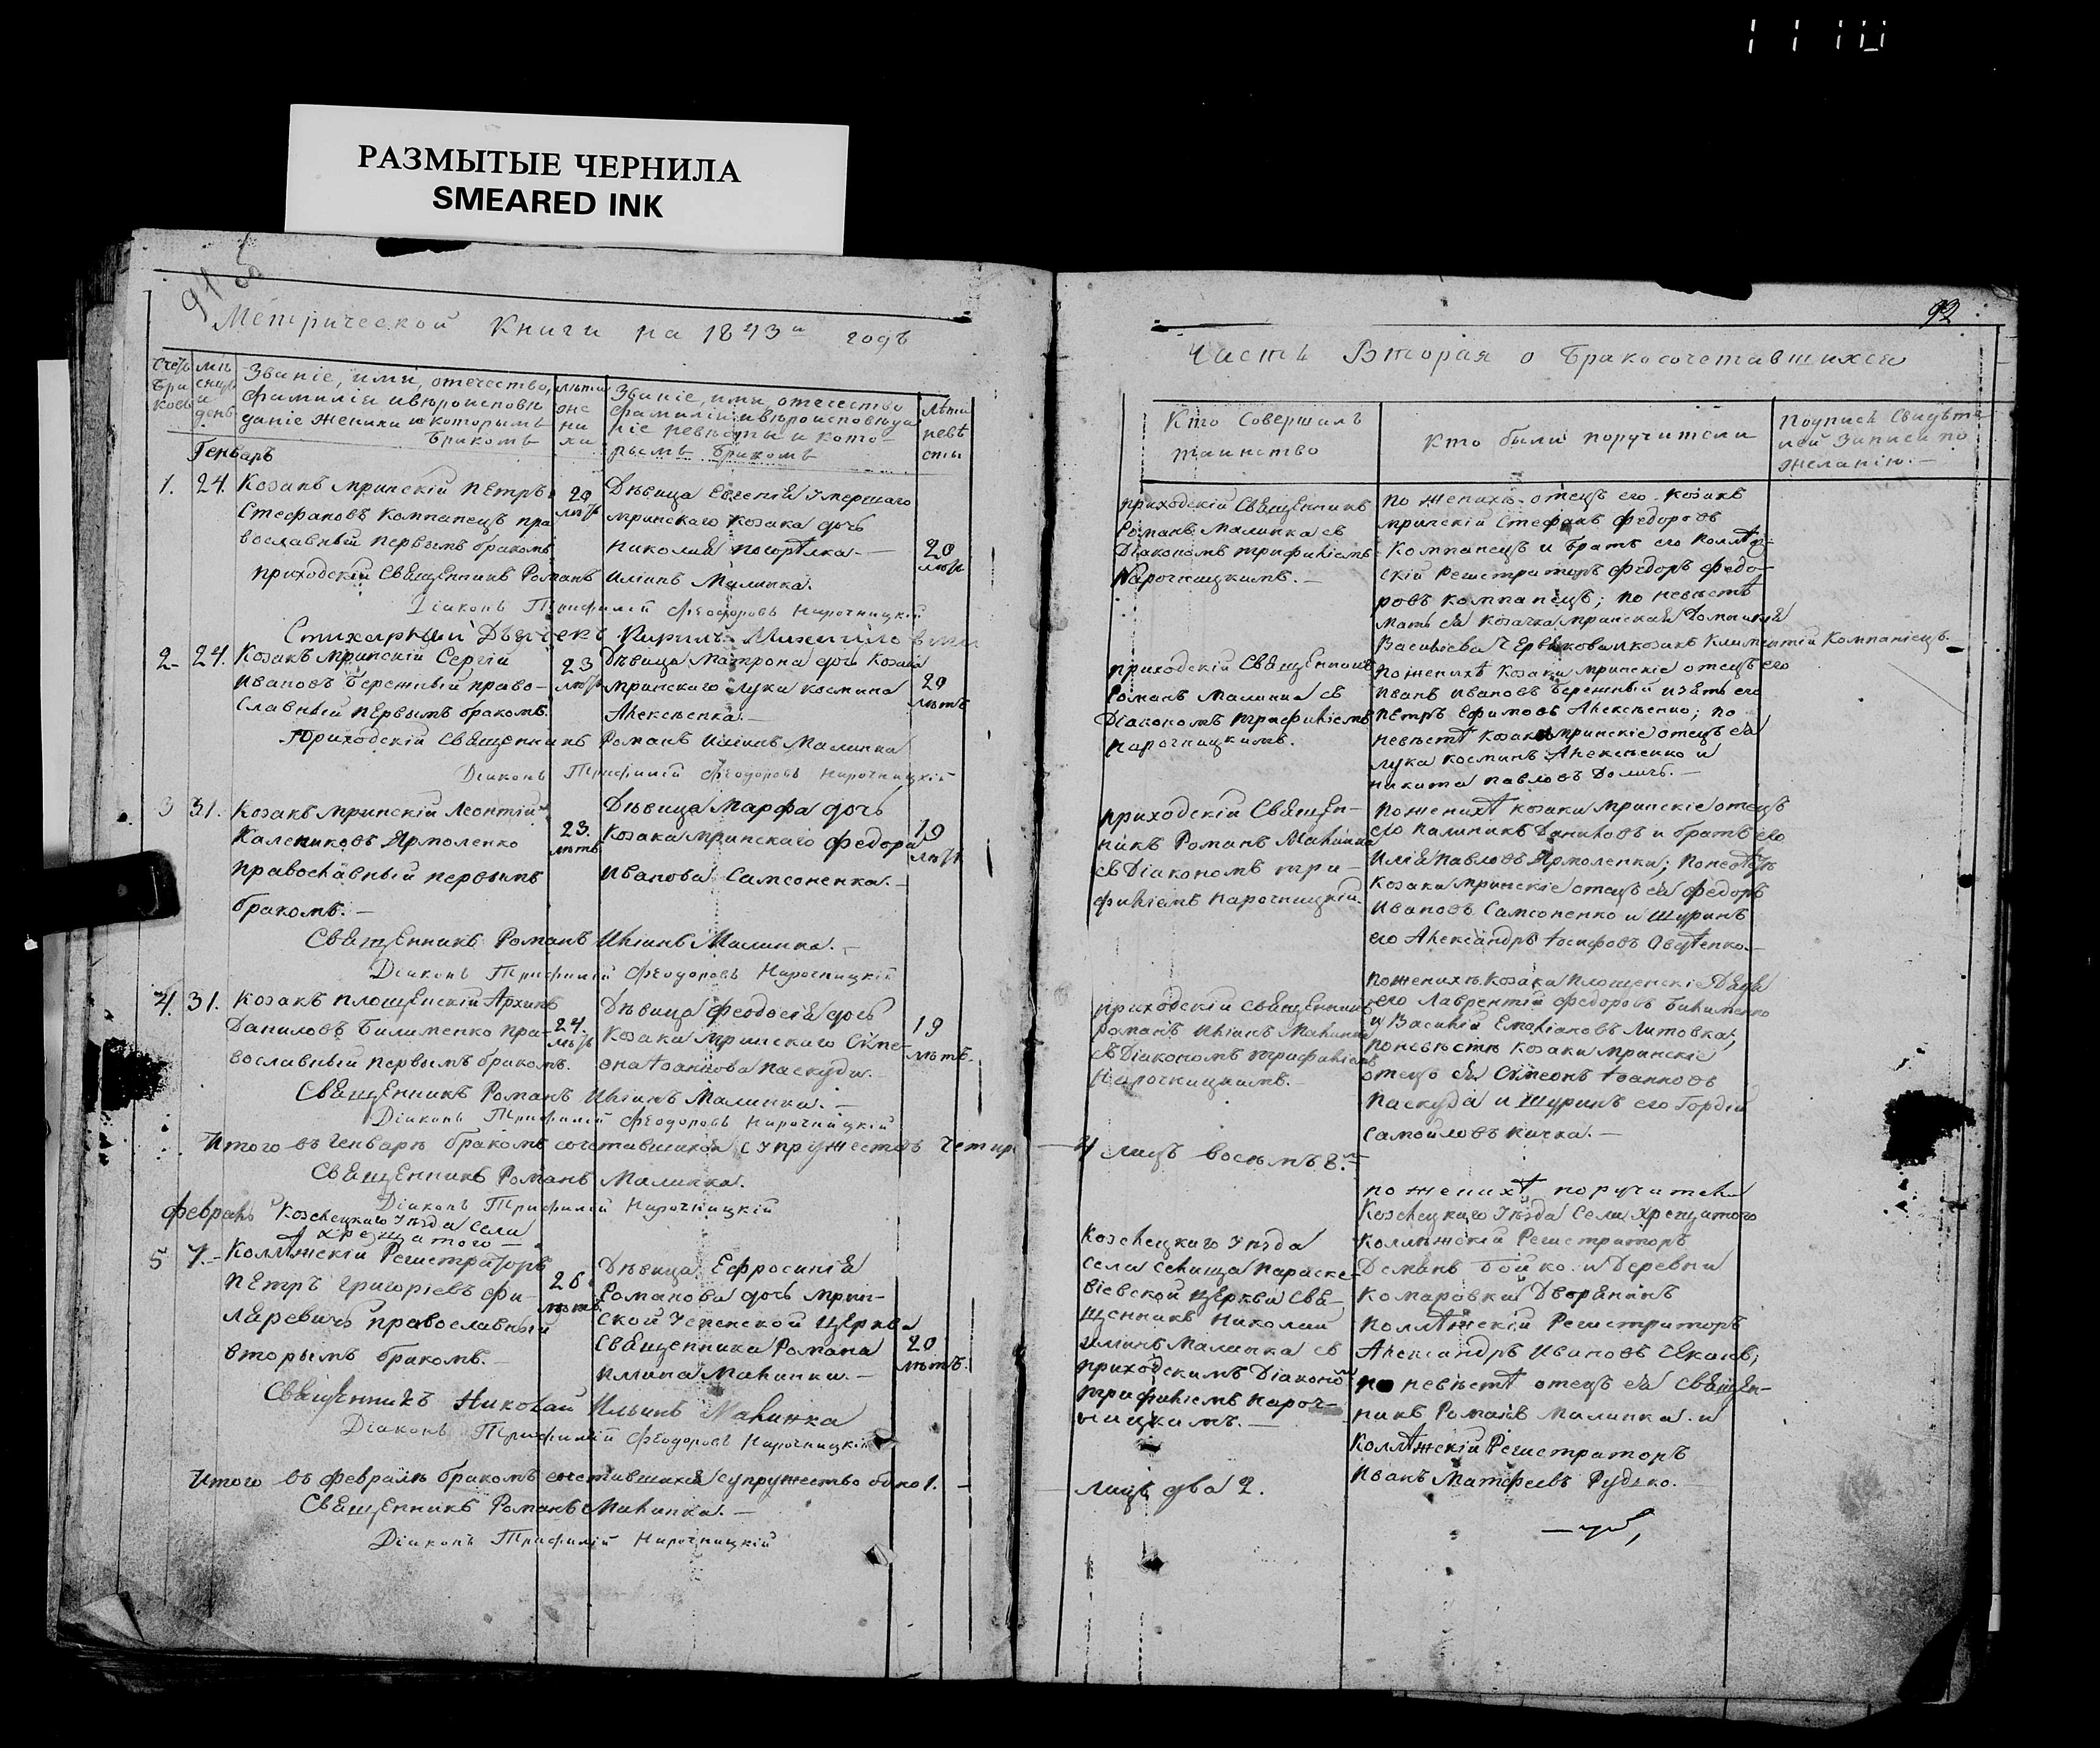 1110
РАЗМЫТЫЕ ЧЕРНИЛА
SMEARED INK
Метрической Книги на 1843й годъ
Счетъ браковъ
мѣсяцъ и день
Званіе, имя, отечество,
фамилія и вѣроисповѣ
даніе жениха и которымъ
бракомъ
лѣта
же
ни
ха
Званіе, имя, отечество
фамилія и вѣроисповѣда
ніе невѣсты и кото
рымъ бракомъ
Лѣта
невѣ
сты
Генварь
1. 24. Козакъ мринскій Петръ
Стефановъ Компанецъ пра
вославный первымъ бракомъ
20
лѣтъ
Дѣвица Евгенія Умершаго
мринскаго козака дочь
Николая погорѣлка.—
20
лѣтъ
приходскій Священникъ Романъ Иліинъ Малинка.
Діаконъ Трифилій Феодоровъ Нарочницкій
Стихарный Дьячекъ Кирилъ
2. 24. Козакъ мринскій Сергій
Ивановъ Бережный право-
славный первымъ бракомъ.
23
лѣтъ
Дѣвица Матрона дочь козака
мринскаго луки космина
Алексѣенка.—
20
лѣтъ
Приходскій Священникъ Романъ Иліинъ Малинка
Діаконъ Трифилій Феодоровъ Нарочницкій
3 31. Козакъ мринскій Леонтій
Калениковъ Ярмоленко
православный первымъ
бракомъ.—
23.
лѣтъ
Дѣвица Марфа дочь
козака мринскаго Федора
Иванова Самсоненка.—
19
лѣтъ
Священникъ Романъ Иліинъ Малинка.—
Діаконъ Трифилій Феодоровъ Нарочницкій
4. 31. Козакъ площенскій Архипъ
Даниловъ Билименко пра-
вославный первымъ бракомъ.
24.
лѣтъ
Дѣвица Феодосія дочь
козака мринскаго Симе-
она Іоаннова паскуды.
19
лѣтъ.
Священникъ Романъ Иліинъ Малинка.—
Діаконъ Трифилій Феодоровъ Нарочницкій
Итого въ Генварѣ бракомъ сочетавшихся супружествъ четыре
Священникъ Романъ Малинка.
Діаконъ Трифилій Нарочницкій
февраль Козелецкаго Уѣзда села
Хрещатого—
5 7.— Коллѣжскій Регистраторъ
Петръ Григоріевъ Фи-
ларевичъ православный
вторымъ бракомъ.—
26
лѣтъ.
Дѣвица Ефросинія
Романова дочь мрин-
ской Успенской Церкви
Священника Романа
Иліина Малинки.—
20
лѣтъ.
Священникъ Николай Ильинъ Малинка
Діаконъ Трифилій Феодоровъ Нарочницкій
Итого въ февралѣ бракомъ сочетавшихся супружество одно 1.—
Священникъ Романъ Малинка.—
Діаконъ Трифилій Нарочницкій
92
Часть Вторая о Бракосочетавшихся
Кто Совершалъ
таинство
Кто были поручители
Подпись Свидѣте
лей Записи по
желанію.—
приходскій Священникъ
Романъ Малинка съ
Діакономъ Трифиліемъ
Нарочницкимъ.—
по женихѣ отецъ его козакъ
мринскій Стефанъ Федоровъ
Компанецъ и братъ его Коллѣж-
скій Регистраторъ Федоръ Федо-
ровъ Компанецъ; по невѣстѣ
мать ея козачка мринская Домникія
Васильева Червякова и козакъ Климентій Компанецъ.
приходскій Священникъ
Романъ Малинка съ
Діакономъ Трифиліемъ
Нарочницкимъ.
по женихѣ Козаки мринскіе отецъ его
Иванъ Ивановъ Бережный и зять его
Петръ Ефимовъ Алексѣенко; по
невѣстѣ козаки мринскіе отецъ ея
лука косминъ Алексѣенко и
никита павловъ Доличъ.—
приходскій Священ-
никъ Романъ Малинка
съ Діакономъ три-
филіемъ Нарочницкій.
по женихѣ козаки мринскіе отецъ
его калиникъ Даниловъ и братъ его
Илія Павловъ Ярмоленки; по невѣстѣ
козаки мринскіе отецъ ея Федоръ
Ивановъ Самсоненко и Шуринъ
его Александръ Іосифовъ
приходскій священникъ
Романъ Иліинъ Малинка
съ Діакономъ трифиліемъ
Нарочницкимъ.—
по женихѣ козаки площенскіе Дядя
его Лаврентій Федоровъ Билименко
и Василій Емеліановъ Литовка;
по невѣстѣ козаки мринскіе
отецъ ея Симеонъ Іоанновъ
Паскуда и шуринъ его Гордій
Самойловъ кичка.—
4 лицъ восемъ 8.—
Козелецкаго Уѣзда
села Селища Параске-
віевской Церкви Свя-
щенникъ Николай
Илиинъ Малинка съ
приходскимъ Діаконом
трифиліемъ Нароч-
ницкимъ.—
по женихѣ поручители
Козелецкаго Уѣзда Села Хрещатого
Коллѣжскій Регистраторъ
Демянъ Бойко. и Деревни
Комаровки Дворянинъ
Коллѣжскій Регистраторъ
Александръ Ивановъ
по невѣстѣ отецъ ея Священ-
никъ Романъ Малинка. и
Коллѣжскій Регистраторъ
Иванъ Матфеевъ Рудько.—
лицъ два 2.